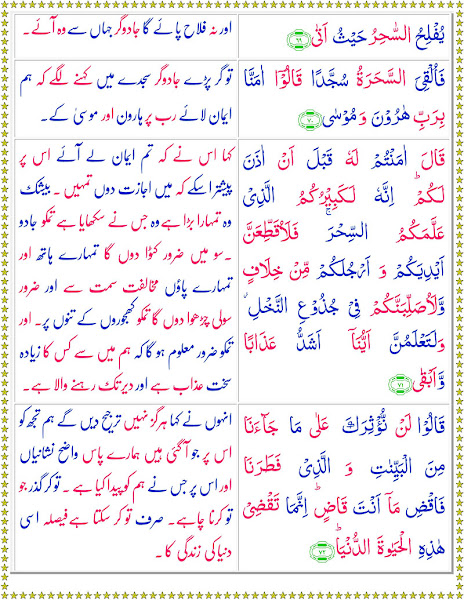 يُفْلِحُ السّٰحِرُ حَيْثُ اَتٰى ﴿۶۹﴾
اور نہ فلاح پائے گا جادوگر جہاں سے وہ آئے۔
فَاُلْقِىَ السَّحَرَةُ سُجَّدًا قَالُوْۤا اٰمَنَّا
بِرَبِّ هٰرُوْنَ وَ مُوْسٰى ﴿۷۰﴾
تو گر پڑے جادوگر سجدے میں کہنے لگے کہ ہم
ایمان لائے رب پر ہارون اور موسیٰ کے۔
قَالَ اٰمَنْتُمْ لَهٗ قَبْلَ اَنْ اٰذَنَ
لَكُمْؕ اِنَّهٗ لَكَبِيْرُكُمُ الَّذِىْ
عَلَّمَكُمُ السِّحْرَۚ فَلَاُقَطِّعَنَّ
اَيْدِيَكُمْ وَ اَرْجُلَكُمْ مِّنْ خِلَافٍ
وَّلَاُصَلِّبَنَّكُمْ فِىْ جُذُوْعِ النَّخْلِ
وَلَتَعْلَمُنَّ اَيُّنَاۤ اَشَدُّ عَذَابًا
وَّاَبْقٰى ﴿۷۱﴾
کہا اس نے کہ تم ایمان لے آئے اس پر
پیشتر اسکے کہ میں اجازت دوں تمہیں ۔ بیشک
وہ تمہارا بڑا ہے وہ جس نے سکھایا ہے تمکو جادو
۔سو میں ضرور کٹوا دوں گا تمہارے ہاتھ اور
تمہارے پاؤں مخالفت سمت سے اور ضرور
سولی چڑھوا دوں گا تمکو کھجوروں کے تنوں پر۔ اور
تمکو ضرور معلوم ہو گا کہ ہم میں سے کس کا زیادہ
سخت عذاب ہے اور دیر تک رہنے والا ہے۔
قَالُوْا لَنْ نُّؤْثِرَكَ عَلٰى مَا جَآءَنَا
مِنَ الْبَيِّنٰتِ وَ الَّذِىْ فَطَرَنَا
فَاقْضِ مَاۤ اَنْتَ قَاضٍؕ اِنَّمَا تَقْضِىْ
هٰذِهِ الْحَيٰوةَ الدُّنْيَاؕ ﴿۷۲﴾
انہوں نے کہا ہرگز نہیں ترجیح دیں گے ہم تجھ کو
اس پر جو آ گئی ہیں ہمارے پاس واضح نشانیاں
اور اس پر جس نے ہم کو پیدا کیا ہے ۔ تو کر گذر جو
تو کرنا چاہے۔ صرف تو کر سکتا ہے فیصلہ اسی
دنیا کی زندگی کا ۔